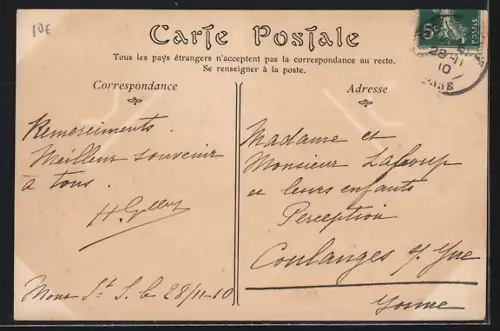 10€
Carte Postale
Tous les pays étrangers n'acceptent pas la correspondance au recto.
Se renseigner à la poste.
Correspondance
Adresse
Remerciements.
Meilleur souvenir
à tous.
Madame et
Monsieur
et leurs enfants
Perception
Coulanges s/ Yne
Yonne
28/11-10
28-11
10
5c
POSTES